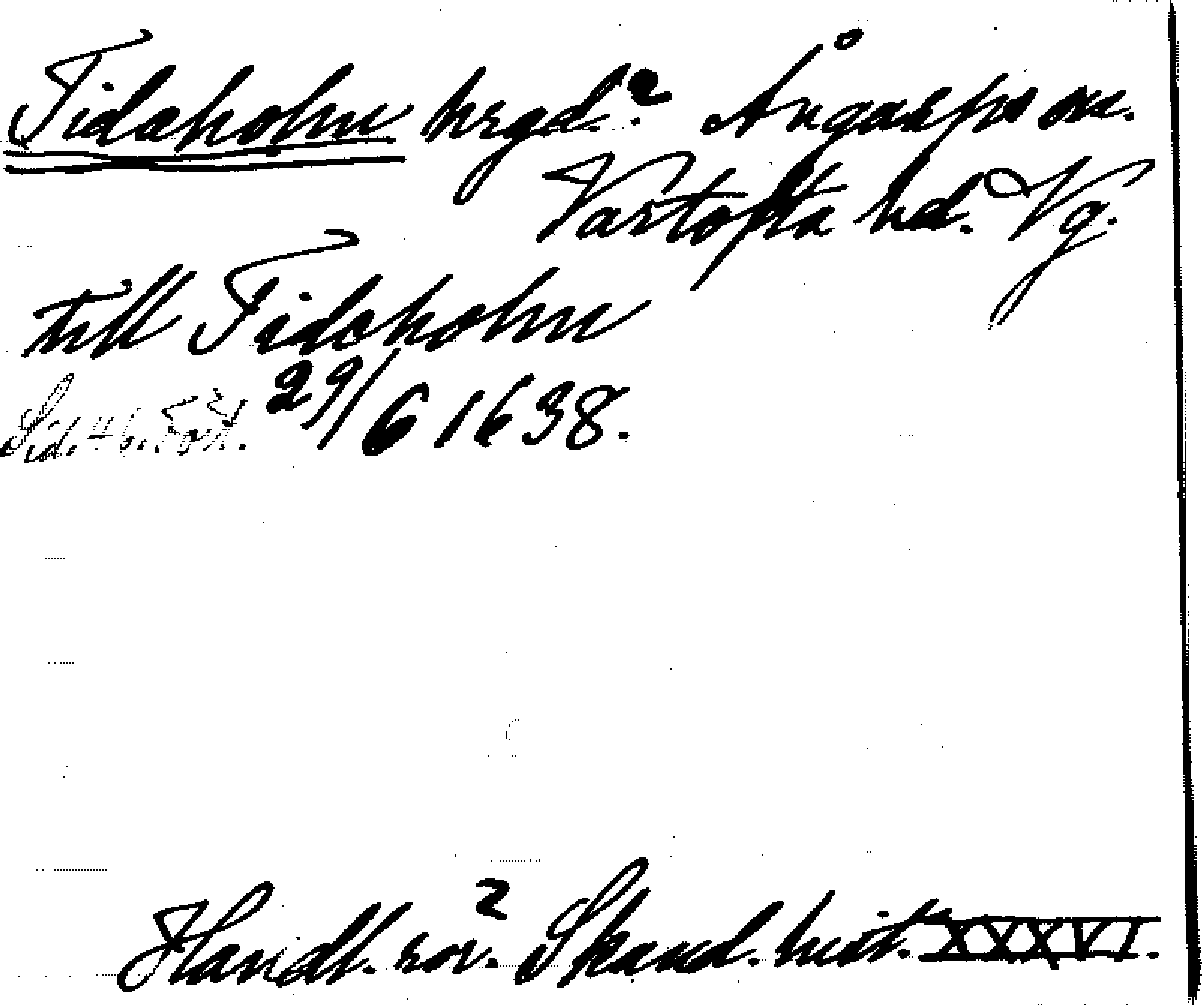 Tidaholm hrgd. Ångarps sn.
Vartofta hd. Vg.
till Tidaholm
Sid. 46. 29/6 1638.
Handl. rör. Skand. hist. XXXVI.